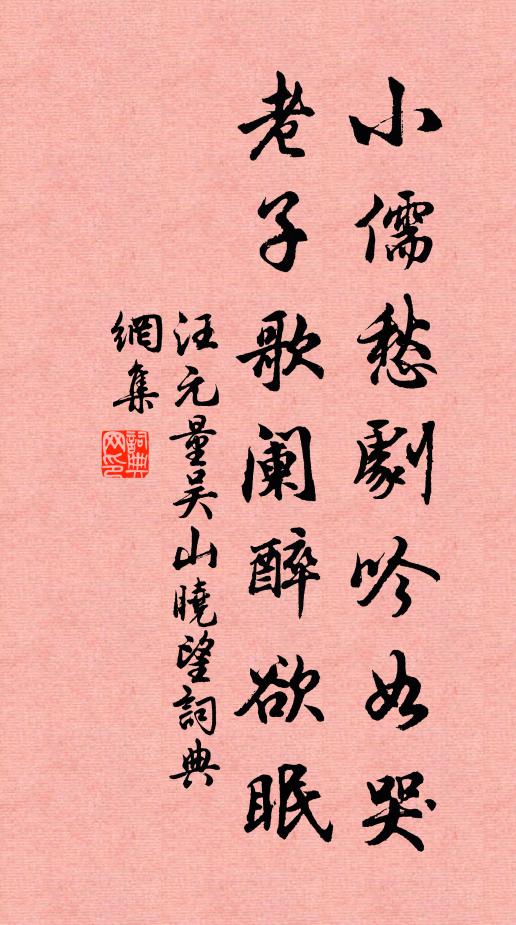 小儒愁劇吟如哭
老子歌阑醉欲眠
汪元量吳山曉望詞典
網集
詞典
网印